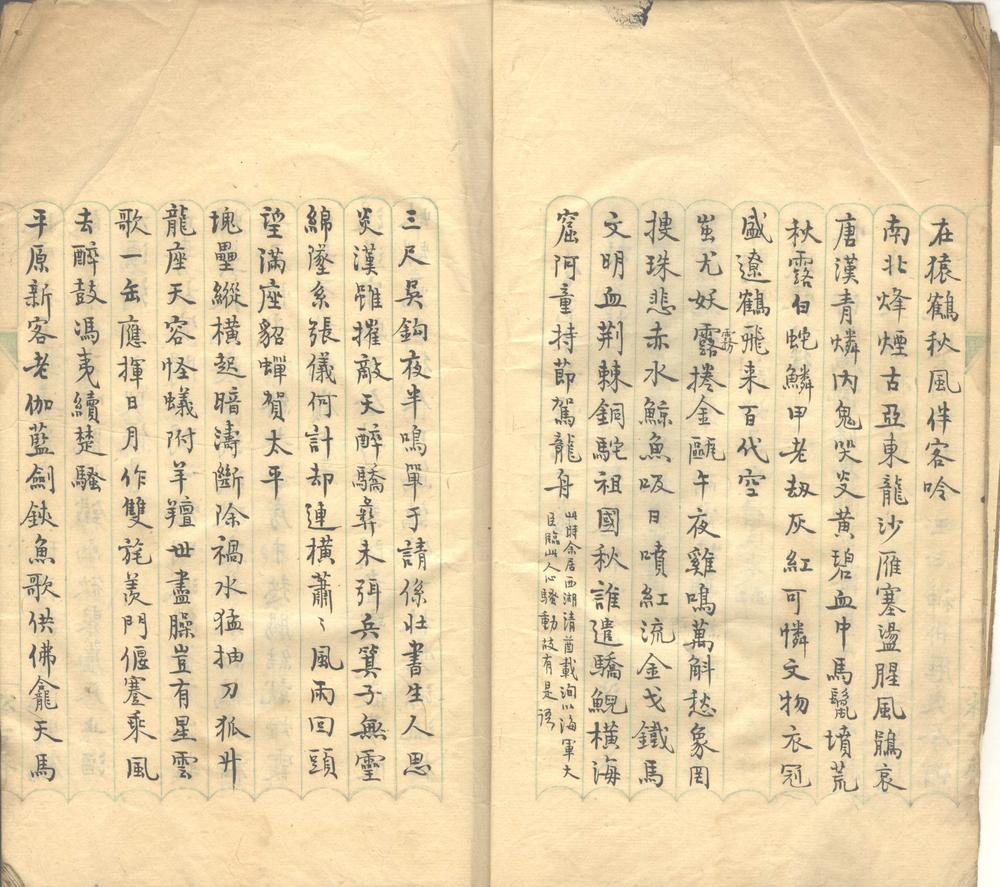 在猿鶴秋風伴客吟
南北烽煙古亞東龍沙雁塞盪腥風鵑哀
唐漢青燐內鬼哭炎黃碧血中馬鬣墳荒
秋露白蛇鱗甲老劫灰紅可憐文物衣冠
盛遼鶴飛来百代空
蚩尤妖露捲金甌午夜雞鳴萬斛愁象罔
霧
搜珠悲赤水鯨魚吸日噴紅流金戈鐵馬
文明血荆棘銅駝祖國秋誰遣驕鯢橫海
窟阿童持節駕龍舟
此時余居西湖清酋載洵以海軍大
臣臨此人心騷動故有是語
三尺吳鈎夜半鳴單于請係壯書生人思
炎漢雖摧敵天醉驕彝未弭兵箕子無靈
綿墬系張儀何計却連横蕭〻風雨回頭
望滿座貂蟬賀太平
塊壘縱橫起暗濤斷除禍水猛抽刀狐升
龍座天容怪蟻附羊羶世盡臊豈有星雲
歌一缶應揮日月作雙旄羨門偃蹇乘風
去醉鼓馮夷續楚騷
平原新客老伽藍劍鋏魚歌供佛龕天馬